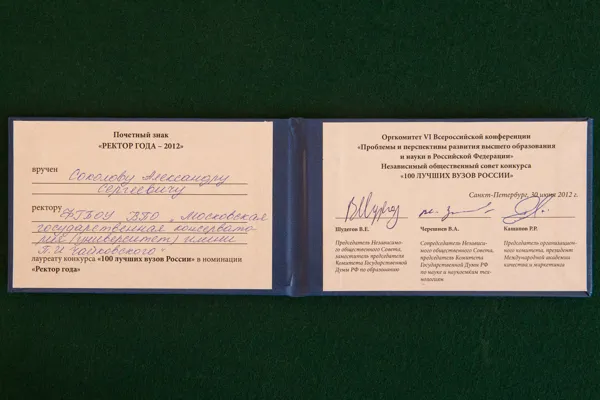 Почетный знак
«РЕКТОР ГОДА – 2012»
вручен Соколову Александру
Сергеевичу
ректору ФГБОУ ВПО „Московская
государственная консервато-
рия (университет) имени
П.И. Чайковского"
лауреату конкурса «100 лучших вузов России» в номинации
«Ректор года»
Оргкомитет VI Всероссийской конференции
«Проблемы и перспективы развития высшего образования
и науки в Российской Федерации»
Независимый общественный совет конкурса
"100 ЛУЧШИХ ВУЗОВ РОССИИ"
Санкт-Петербург, 30 июня 2012 г.
Шудегов В.Е.
Председатель Независимо-
го общественного Совета,
заместитель председателя
Комитета Государственной
Думы РФ по образованию
Черешнев В.А.
Сопредседатель Независи-
мого общественного Совета,
председатель Комитета
Государственной Думы РФ
по науке и наукоемким тех-
нологиям
Кашапов Р.Р.
Председатель организацион-
ного комитета, президент
Международной академии
качества и маркетинга